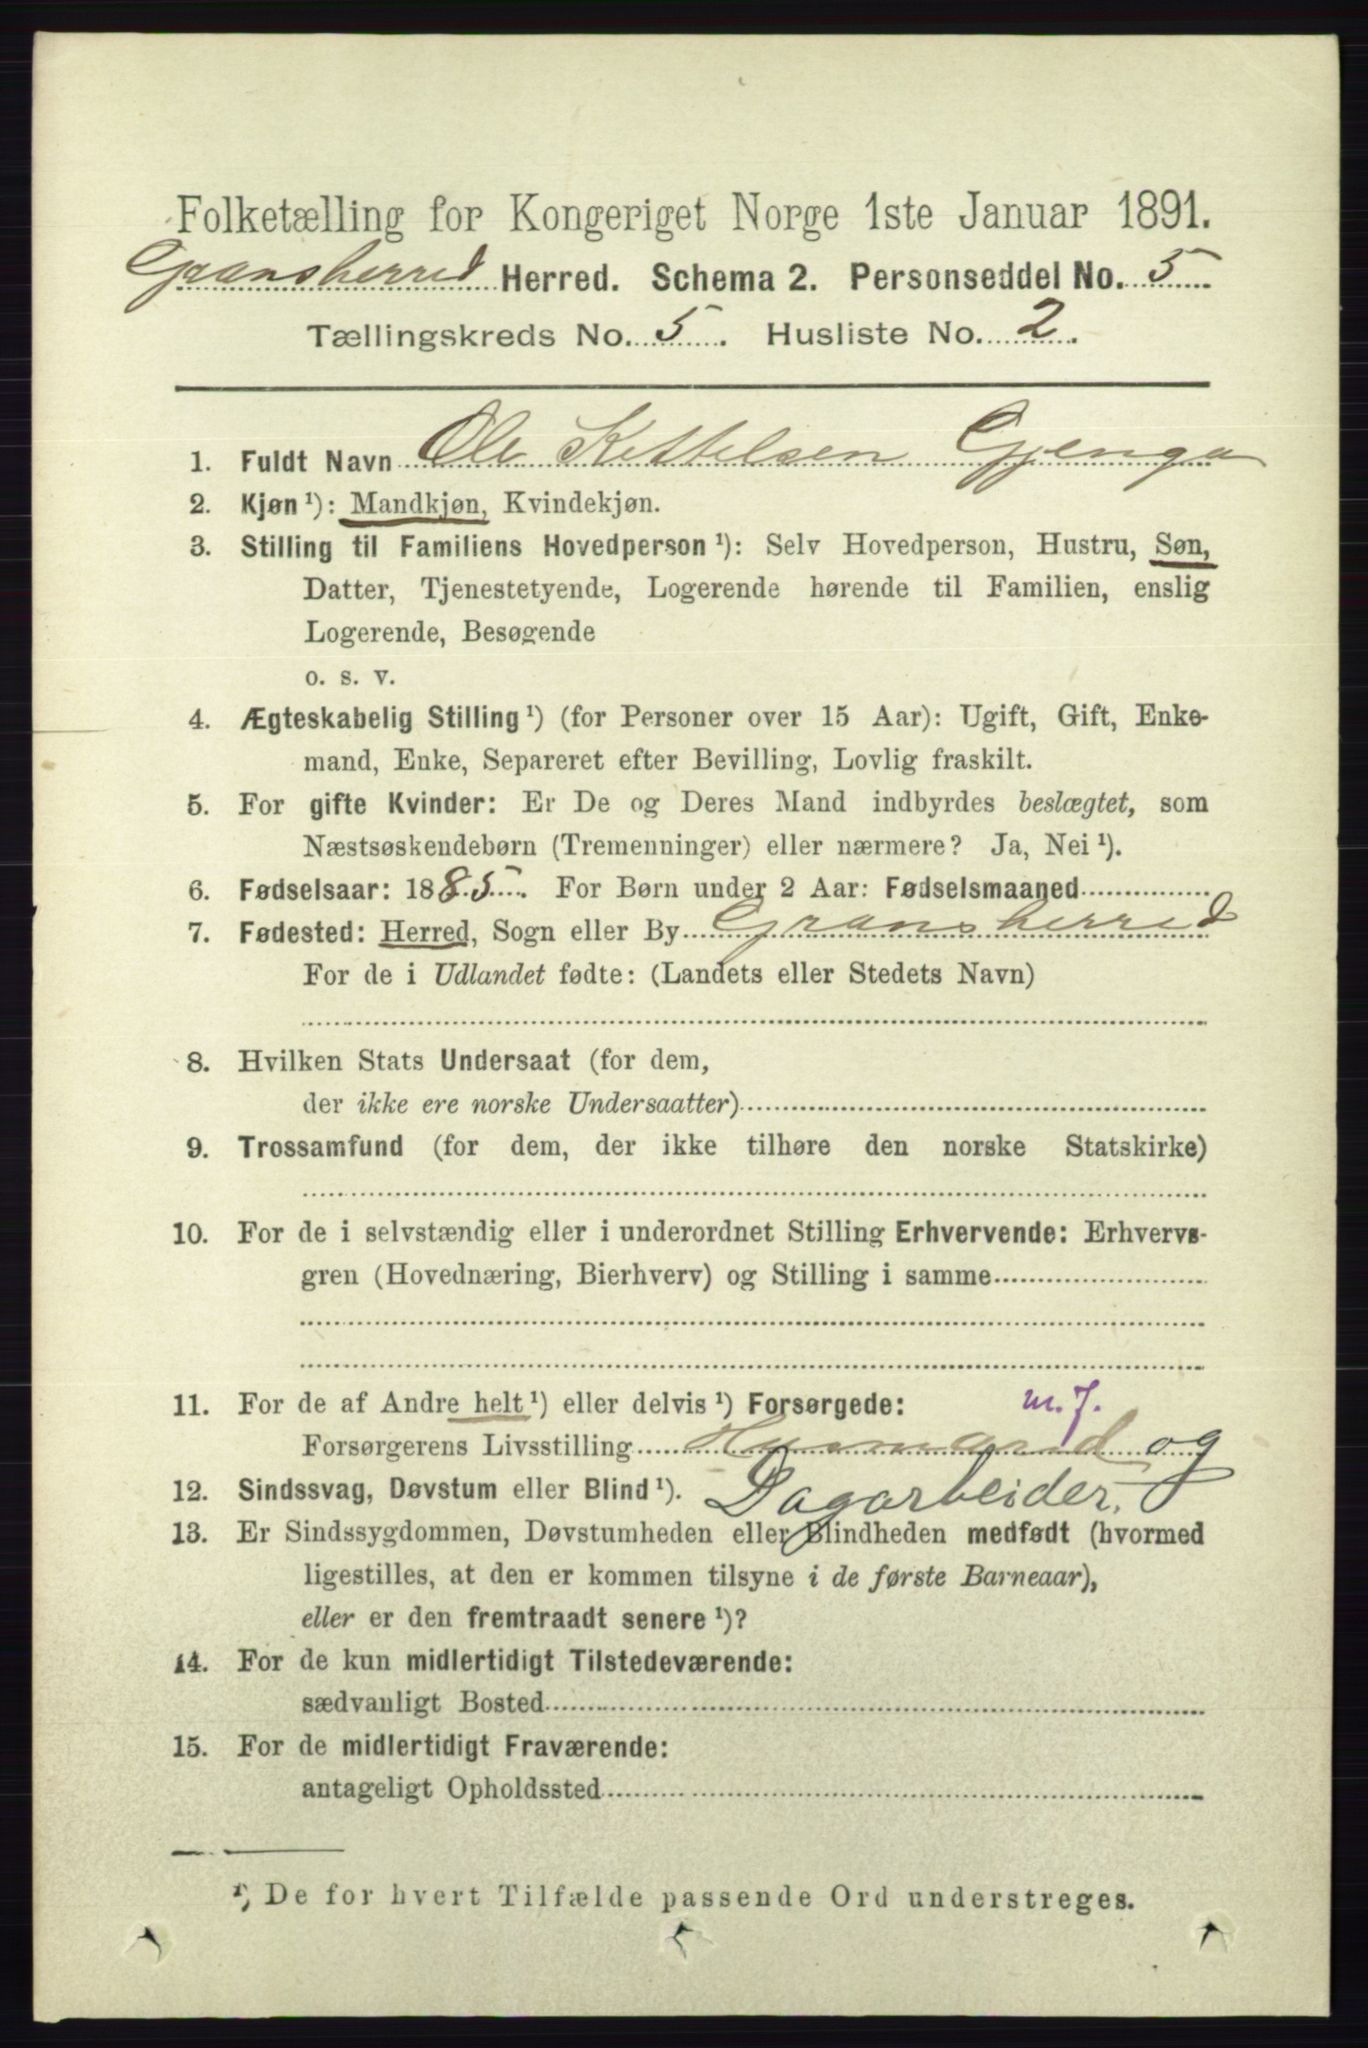 Folketælling for Kongeriget Norge 1ste Januar 1891.
Gransherred Herred. Schema 2. Personseddel No. 5
Tællingskreds No. 5. Husliste No. 2.
1. Fuldt Navn Ole Kettelsen Gjenga
2. Kjøn ¹): Mandkjøn, Kvindekjøn.
3. Stilling til Familiens Hovedperson ¹): Selv Hovedperson, Hustru, Søn,
Datter, Tjenestetyende, Logerende hørende til Familien, enslig
Logerende, Besøgende
o. s. v.
4. Ægteskabelig Stilling ¹) (for Personer over 15 Aar): Ugift, Gift, Enke-
mand, Enke, Separeret efter Bevilling, Lovlig fraskilt.
5. For gifte Kvinder: Er De og Deres Mand indbyrdes beslægtet, som
Næstsøskendebørn (Tremenninger) eller nærmere? Ja, Nei ¹).
6. Fødselsaar: 1885. For Børn under 2 Aar: Fødselsmaaned
7. Fødested: Herred, Sogn eller By Gransherred
For de i Udlandet fødte: (Landets eller Stedets Navn)
8. Hvilken Stats Undersaat (for dem,
der ikke ere norske Undersaatter)
9. Trossamfund (for dem, der ikke tilhøre den norske Statskirke)
10. For de i selvstændig eller i underordnet Stilling Erhvervende: Erhvervs-
gren (Hovednæring, Bierhverv) og Stilling i samme
11. For de af Andre helt ¹) eller delvis ¹) Forsørgede: m. J.
Forsørgerens Livsstilling Husmand og
12. Sindssvag, Døvstum eller Blind ¹). Dagarbeider.
13. Er Sindssygdommen, Døvstumheden eller Blindheden medfødt (hvormed
ligestilles, at den er kommen tilsyne i de første Barneaar),
eller er den fremtraadt senere ¹)?
14. For de kun midlertidigt Tilstedeværende:
sædvanligt Bosted
15. For de midlertidigt Fraværende:
antageligt Opholdssted
¹) De for hvert Tilfælde passende Ord understreges.